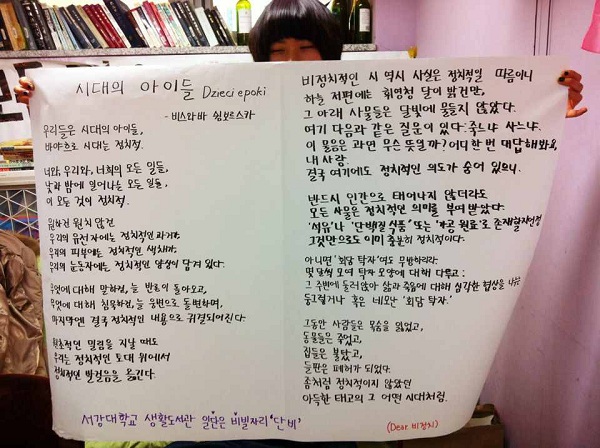 시대의 아이들 Dzieci epoki
- 비스와바 쉼보르스카
우리들은 시대의 아이들,
바야흐로 시대는 정치적.
너와, 우리와, 너희의 모든 일들,
낮과 밤에 일어나는 모든 일들,
이 모든 것이 정치적.
원하건 원치 않건
우리의 유전자에는 정치적인 과거가,
우리의 피부에는 정치적인 색채가,
우리의 눈동자에는 정치적인 양상이 담겨 있다.
무엇에 대해 말하건, 늘 반향이 돌아오고,
무엇에 대해 침묵하건, 늘 웅변으로 돌변하며,
마지막엔 결국 정치적인 내용으로 귀결되어진다.
원초적인 밀림을 지날 때도
우리는 정치적인 토대 위에서
정치적인 발걸음을 옮긴다.
서강대학교 생활도서관 일단은 비빌자리 '단비'
비정치적인 시 역시 사실은 정치적일 따름이니
하늘 저편에는 휘영청 달이 밝건만,
그 아래 사물들은 달빛에 물들지 않았다.
여기 다음과 같은 질문이 있다: 죽느냐 사느냐.
이 물음은 과연 무슨 뜻일까? 어디 한 번 대답해봐요,
내 사랑.
결국 여기에도 정치적인 의도가 숨어 있으니.
반드시 인간으로 태어나지 않더라도
모든 사물은 정치적인 의미를 부여 받았다.
'석유'나 '단백질 식품' 또는 '가공 원료'로 존재할지언정
그것만으로도 이미 충분히 정치적이다.
아니면 '회담 탁자'여도 무방하리라.
몇 달씩 모여 탁자 모양에 대해 다투고:
그 주변에 둘러앉아 삶과 죽음에 대해 심각한 협상을 나누는
둥그렇거나 혹은 네모난 '회담 탁자.'
그동안 사람들은 목숨을 잃었고,
동물들은 죽었고,
집들은 불탔고,
들판은 폐허가 되었다.
좀처럼 정치적이지 않았던
아득한 태고의 그 어떤 시대처럼.
(Dear. 비정치)